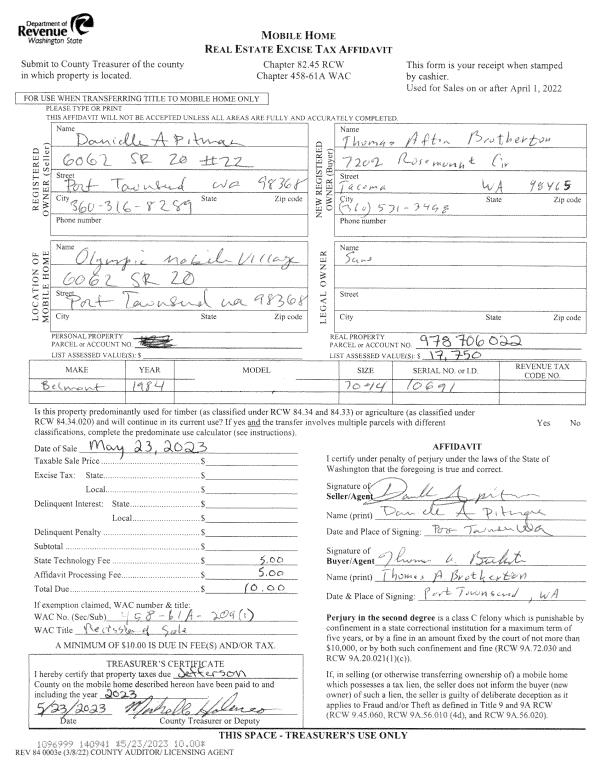 Department of
Revenue
Washington State
MOBILE HOME
REAL ESTATE EXCISE TAX AFFIDAVIT
Submit to County Treasurer of the county
in which property is located.
Chapter 82.45 RCW
Chapter 458-61A WAC
This form is your receipt when stamped
by cashier.
Used for Sales on or after April 1, 2022
FOR USE WHEN TRANSFERRING TITLE TO MOBILE HOME ONLY
PLEASE TYPE OR PRINT
THIS AFFIDAVIT WILL NOT BE ACCEPTED UNLESS ALL AREAS ARE FULLY AND ACCURATELY COMPLETED.
REGISTERED
OWNER (Seller)
Name
Danielle A Pitman
6062 SR 20 #22
Street
Port Townsend wa 98368
City State Zip code
360-316-8289
Phone number
NEW REGISTERED
OWNER (Buyer)
Name
Thomas Afton Brotherton
7202 Rosemount Cir
Street
Tacoma WA 98465
City State Zip code
(360) 531-3498
Phone number
LOCATION OF
MOBILE HOME
Name
Olympic mobile Village
6062 SR 20
Street
Port Townsend wa 98368
City State Zip code
LEGAL OWNER
Name
Same
Street
City State Zip code
PERSONAL PROPERTY
PARCEL or ACCOUNT NO.
LIST ASSESSED VALUE(S): $
REAL PROPERTY
PARCEL or ACCOUNT NO. 978706022
LIST ASSESSED VALUE(S): $ 17,750
MAKE YEAR MODEL SIZE SERIAL NO. or I.D. REVENUE TAX
CODE NO.
Belmont 1984 10691
Is this property predominantly used for timber (as classified under RCW 84.34 and 84.33) or agriculture (as classified under
RCW 84.34.020) and will continue in its current use? If yes and the transfer involves multiple parcels with different
classifications, complete the predominate use calculator (see instructions). Yes No
Date of Sale May 23, 2023
Taxable Sale Price $
Excise Tax: State $
Local $
Delinquent Interest: State $
Local $
Delinquent Penalty $
Subtotal $
State Technology Fee $ 5.00
Affidavit Processing Fee $ 5.00
Total Due $ 10.00
If exemption claimed, WAC number & title:
WAC No. (Sec/Sub) 458-61A-209(1)
WAC Title Recission of Sale
A MINIMUM OF $10.00 IS DUE IN FEE(S) AND/OR TAX.
AFFIDAVIT
I certify under penalty of perjury under the laws of the State of
Washington that the foregoing is true and correct.
Signature of
Seller/Agent
Name (print) Danielle A Pitman
Date and Place of Signing: Port Townsend WA
Signature of
Buyer/Agent
Name (print) Thomas A Brotherton
Date & Place of Signing: Port Townsend, WA
Perjury in the second degree is a class C felony which is punishable by
confinement in a state correctional institution for a maximum term of
five years, or by a fine in an amount fixed by the court of not more than
$10,000, or by both such confinement and fine (RCW 9A.72.030 and
RCW 9A.20.021(1)(c)).
If, in selling (or otherwise transferring ownership of) a mobile home
which possesses a tax lien, the seller does not inform the buyer (new
owner) of such a lien, the seller is guilty of deliberate deception as it
applies to Fraud and/or Theft as defined in Title 9 and 9A RCW
(RCW 9.45.060, RCW 9A.56.010 (4d), and RCW 9A.56.020).
TREASURER'S CERTIFICATE
I hereby certify that property taxes due Jefferson
County on the mobile home described hereon have been paid to and
including the year 2023
5/23/2023
Date County Treasurer or Deputy
THIS SPACE - TREASURER'S USE ONLY
1096999 140941 *5/23/2023 10.00*
REV 84 0003e (3/8/22) COUNTY AUDITOR/ LICENSING AGENT